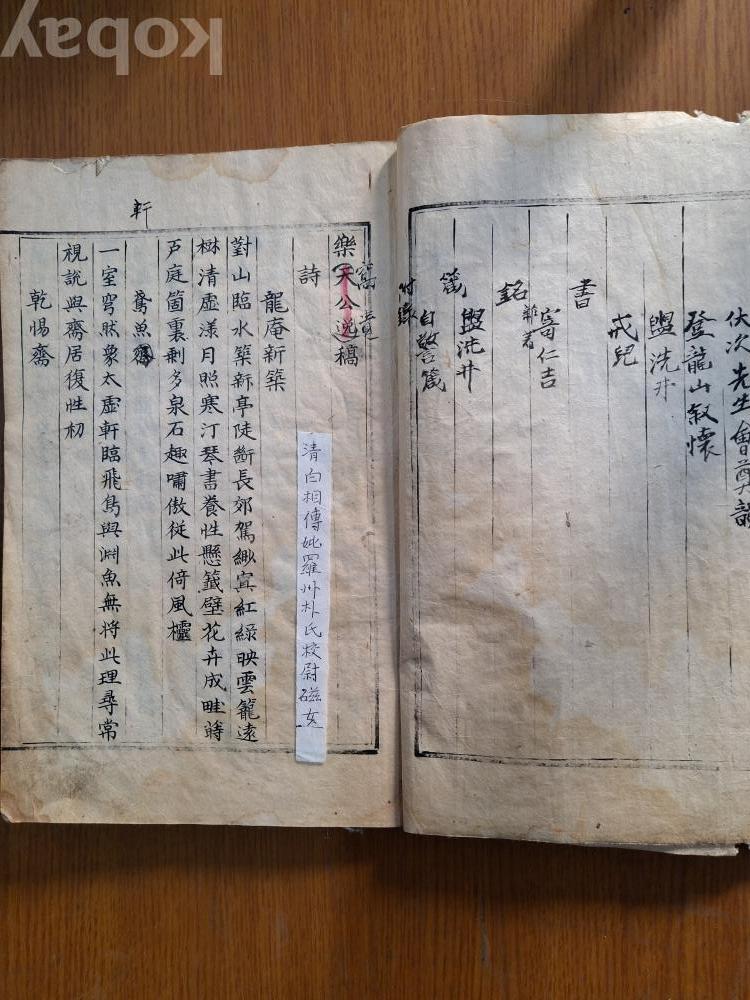 kobay
次先生會尊韻
登龍山敍懷
盥洗井
戒兒
書
寄仁吉
雜著
銘
盥洗井
箴
自警箴
附錄
樂天公逸稿
詩
清白相傳妣羅州朴氏校尉磁女
龍庵新築
對山臨水築新亭陡斷長郊駕緲冥紅綠映雲籠遠
樹清虛漾月照寒汀琴書養性懸籤壁花卉成畦蒔
戶庭箇裏剩多泉石趣嘯傲從此倚風欞
軒
鳶魚
一室穹然象太虛軒臨飛鳥與淵魚無將此理尋常
視說與齋居復性初
乾惕齋